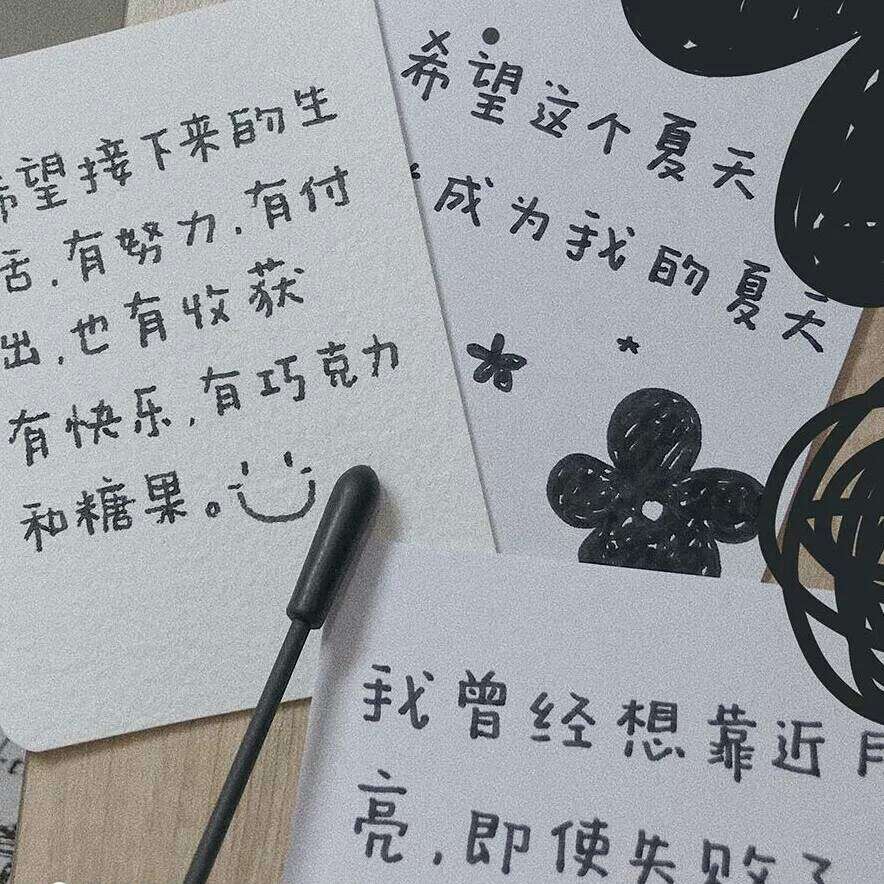 希望接下来的生
活,有努力,有付
出,也有收获
有快乐,有巧克力
和糖果。
希望这个夏天
成为我的夏天
我曾经想靠近月
亮,即使失败了